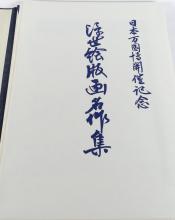 日本万国博開催記念
浮世絵版画名作集